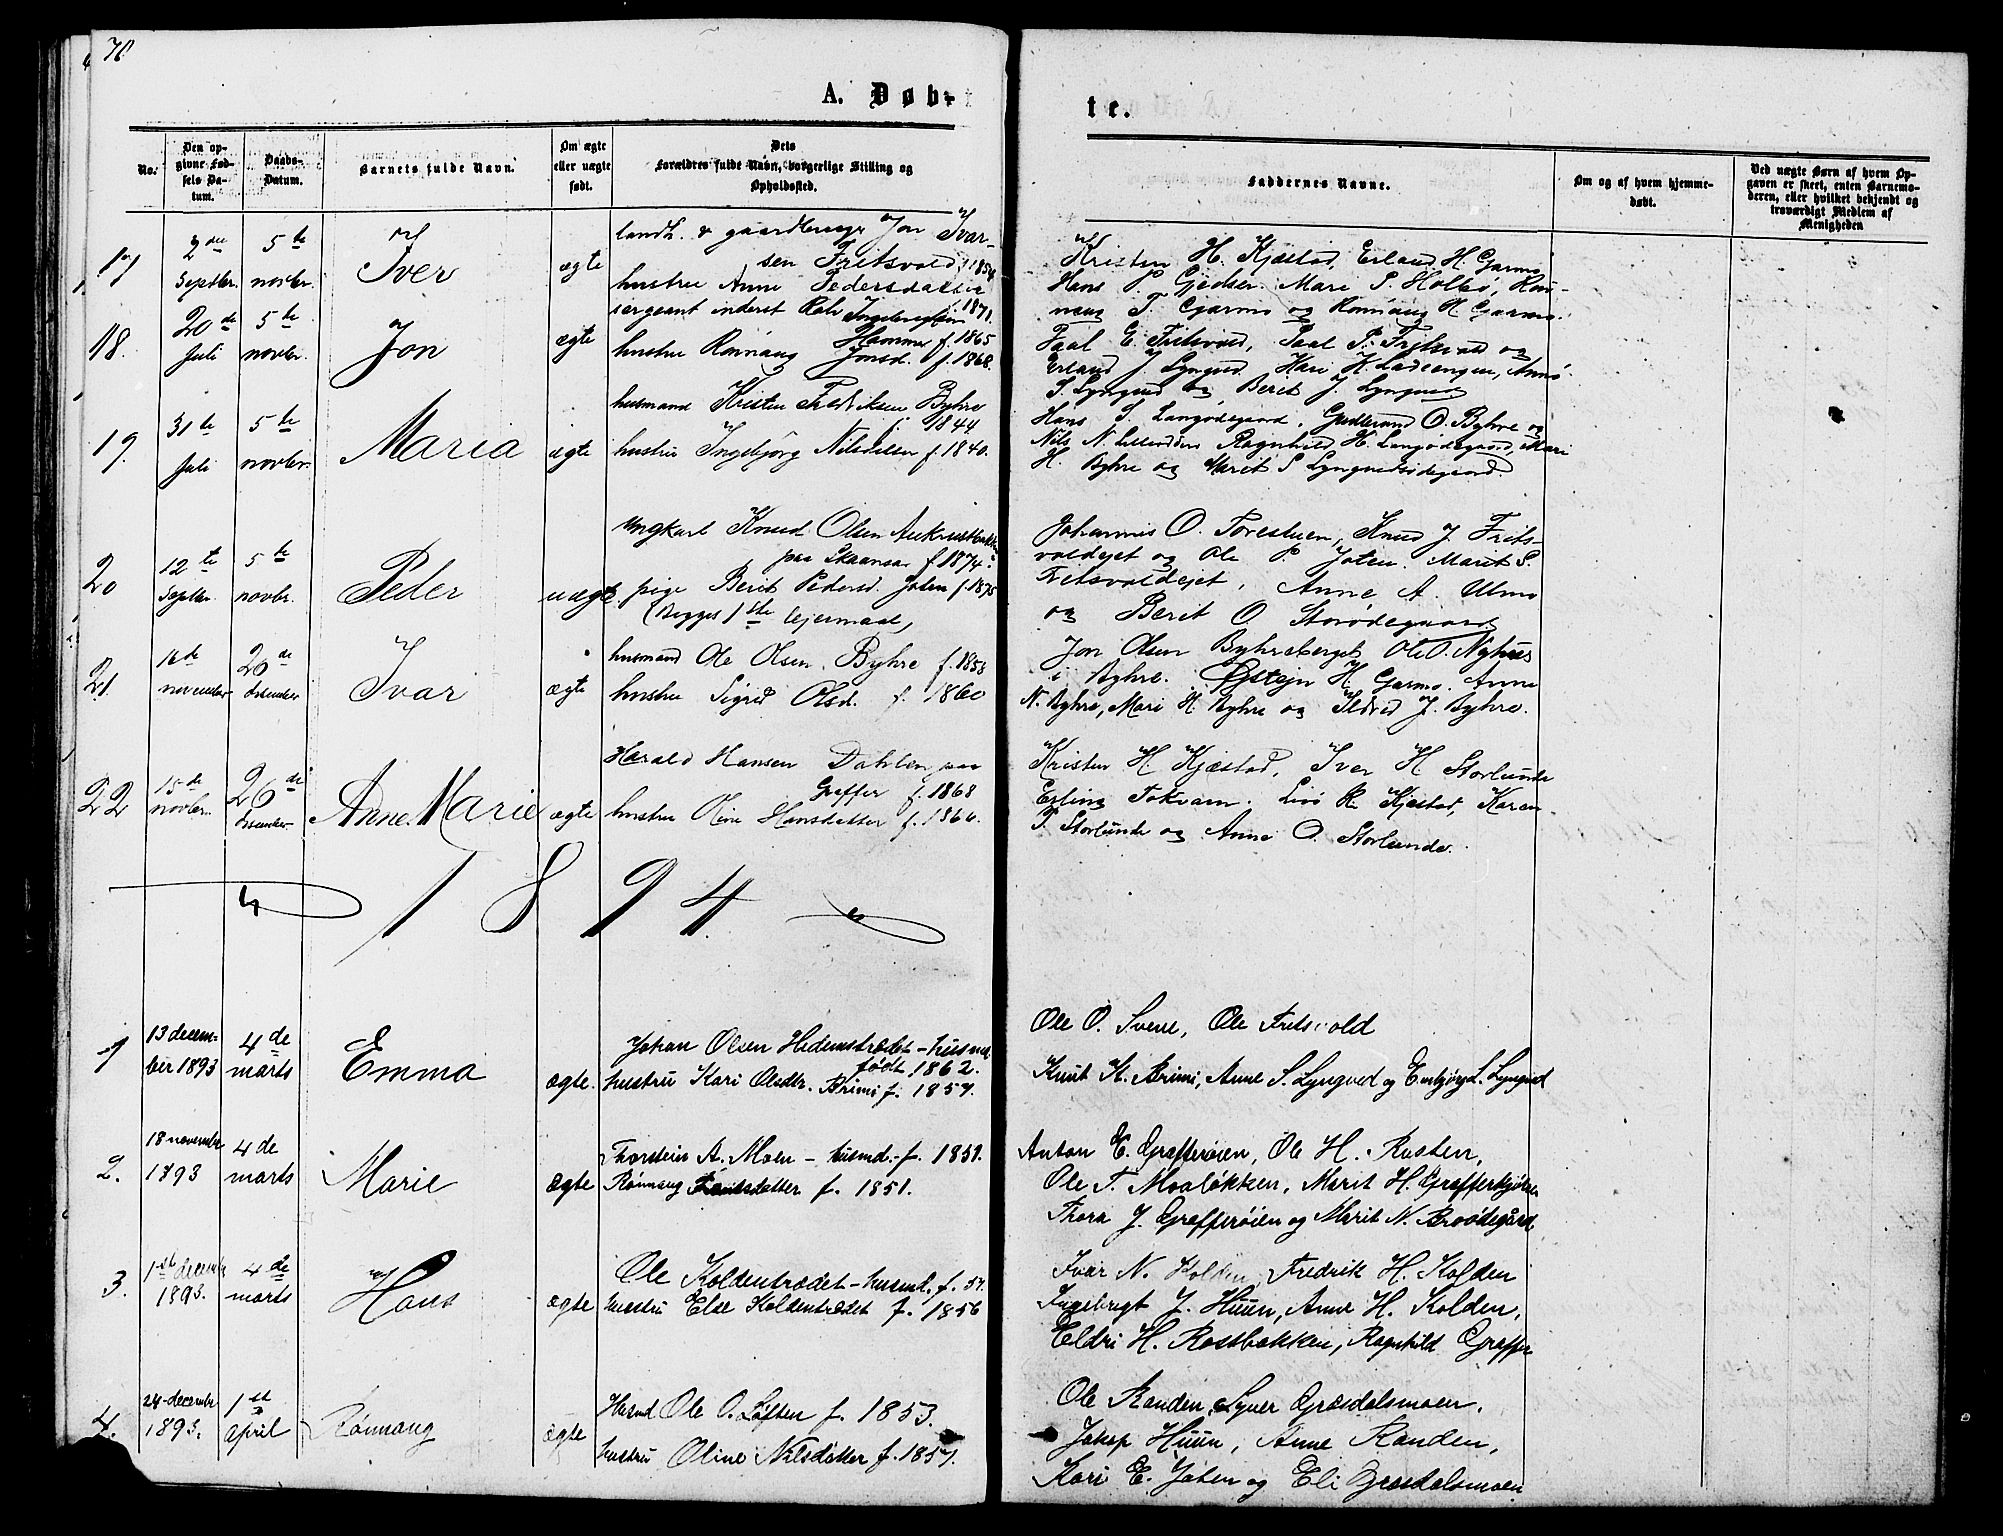 76
A. Døb-
te.
No.
Den op-
givne Fød-
sels Da-
tum.
Daabs-
Datum.
Barnets fulde Navn.
Om ægte
eller uægte
født.
Dets
Forældres fulde Navn, borgerlige Stilling og
Opholdssted.
Faddernes Navne.
Om og af hvem hjemme-
døbt.
Ved uægte Børn af hvem Op-
gaven er skeet, enten Barnemo-
deren, eller hvilket bekjendt og
troværdigt Medlem af
Menigheden
17
2den
Septbr.
5te
novbr.
Iver
ægte
landh. & gaardbruger Jon Ivar-
sen Fritsvold f. 1854
hustru Anne Pedersdatter
f. 1871.
Kristen H. Kjæstad, Erland H. Garmo
Hans P. Gjedser. Mari P. Holbø, Røn-
naug T. Garmo og Rønnaug H. Garmo.
18.
20de
Juli
5te
novbr.
Jon
ægte
sergeant inderet Rolv Ingebrigtsen
Hammer f. 1865
hustru Rønnaug Jonsd. f. 1868.
Paal E. Fritsvold, Paal P. Fritsvold og
Erland J. Lyngved, Kari H. Ladeengen, Anne
S. Lyngved og Berit J. Lyngved
19.
31te
Juli
5te
novbr.
Maria
ægte
husmand Kristen Fredriksen Byhre
f. 1844
hustru Ingebjørg Nilsdatter f. 1840.
Hans S. Langødegaard, Gudbrand O. Byhre og
Nils N. Ragnhild H. Langødegaard, Mari
H. Byhre og Marit S. Lyngvedsødegaard.
20
12te
Septbr.
5te
novbr.
Peder
uægte
ungkarl Knud Olsen Aukrustbakken
paa Skaansar f. 1874.
pige Berit Pedersd. Joten f. 1875
(Begges 1ste Lejermaal)
Johannis O. Forestuen, Knud J. Frits-
voldejet og Ole P. Joten. Marit S.
Fritsvoldejet, Anne A. Ulmo
og Berit O. Storødegaard
21.
16de
november
26de
december
Ivar
ægte
husmand Ole Olsen Byhre f. 1853
hustru Sigrid Olsd. f. 1860
Jon Olsen Byhreberget, Ole O. Nyhus
i Byhre. Østejn H. Garmo. Anne
N. Byhre, Mari H. Byhre og Ildrid J. Byhre.
22
15de
novbr.
26de
december
Anne Marie
ægte
Harald Hansen Dahlen paa
Graffer f. 1868
hustru Oline Hansdatter f. 1864.
Kristen H. Kjæstad, Iver H Storlunde
Erling Tokvam. Livø R. Kjæstad, Karen
T. Storlunde og Anne O. Storlunde.
1894
1
13 decem-
ber 1893
4de
marts
Emma
ægte.
Johan Olsen Hedemstrædet – husmd.
født 1862.
hustru Kari Olsdtr. Brimi f. 1857.
Ole O. Svene, Ole Fritsvold
Knut H. Brimi, Anne S. Lyngved og Embjørg L. Lyngved
2.
18 november
1893
4de
marts
Marie
ægte
Thorstein A. Moen – husmd. f. 1851.
Rønnaug datter f. 1851.
Anton E. Grafferøien, Ole H. Rusten,
Ole T. Moaløkken, Marit H. Grafferkjørren
Thora J. Grafferøien og Marit N. Broødegård
3.
1st decembr
1893.
4de
marts
Hans
ægte
Ole Koldentrædet – husmd. f. 57.
hustru Else Koldentrædet f. 1856
Ivar N. Kolden, Fredrik H. Kolden
Ingebrigt J. Huun, Anne H. Kolden,
Eldri H. Rostbakken, Ragnhild Graffer
4.
24 december
1893.
1st
april
Rønnaug
ægte
Husmd Ole O. Løften f. 1853.
hustru Oline Nilsdatter f. 1857.
Ole Randen, Syver Græsdalsmoen.
Jakop Huun, Anne Randen,
Kari E. Joten og Eli Græsdalsmoen